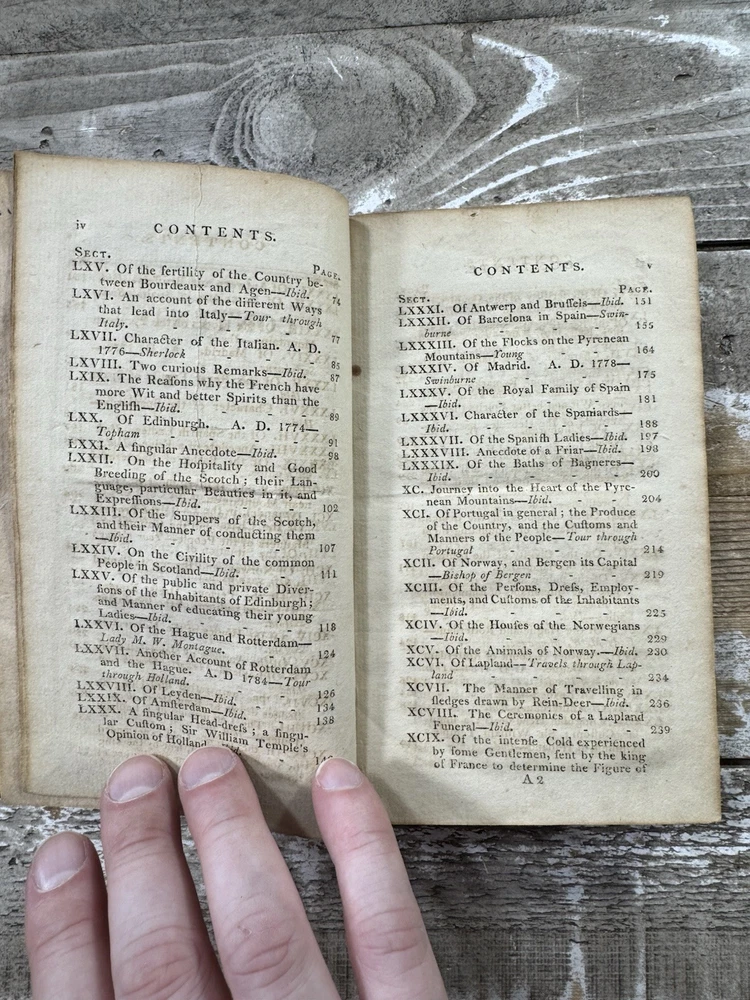 iv
CONTENTS.
SECT. PAGE.
LXV. Of the fertility of the Country be-
tween Bourdeaux and Agen—Ibid. 74
LXVI. An account of the different Ways
that lead into Italy—Tour through
Italy. - - - - 77
LXVII. Character of the Italian. A. D.
1776—Sherlock - - - 85
LXVIII. Two curious Remarks—Ibid. 87
LXIX. The Reaſons why the French have
more Wit and better Spirits than the
Engliſh—Ibid. - - - 89
LXX. Of Edinburgh. A. D. 1774—
Topham - - - 91
LXXI. A ſingular Anecdote—Ibid. - 98
LXXII. On the Hoſpitality and Good
Breeding of the Scotch; their Lan-
guage, particular Beauties in it, and
Expreſſions—Ibid. - - 102
LXXIII. Of the Suppers of the Scotch,
and their Manner of conducting them
—Ibid. - - - 107
LXXIV. On the Civility of the common
People in Scotland—Ibid. - 111
LXXV. Of the public and private Diver-
ſions of the Inhabitants of Edinburgh;
and Manner of educating their young
Ladies—Ibid. - - - 118
LXXVI. Of the Hague and Rotterdam—
Lady M. W. Montague. - - 124
LXXVII. Another Account of Rotterdam
and the Hague. A. D 1784—Tour
through Holland. - - 126
LXXVIII. Of Leyden—Ibid. - 134
LXXIX. Of Amſterdam—Ibid. - 138
LXXX. A ſingular Head-dreſs; a ſingu-
lar Cuſtom; Sir William Temple's
Opinion of Holland
CONTENTS. v
SECT. PAGE.
LXXXI. Of Antwerp and Bruſſels—Ibid. 151
LXXXII. Of Barcelona in Spain—Swin-
burne - - - 155
LXXXIII. Of the Flocks on the Pyrenean
Mountains—Young - - 164
LXXXIV. Of Madrid. A. D. 1778—
Swinburne - - - 175
LXXXV. Of the Royal Family of Spain
—Ibid. - - - 181
LXXXVI. Character of the Spaniards—
Ibid. - - - 188
LXXXVII. Of the Spaniſh Ladies—Ibid. 197
LXXXVIII. Anecdote of a Friar—Ibid. 198
LXXXIX. Of the Baths of Bagneres—
Ibid. - - - 200
XC. Journey into the Heart of the Pyre-
nean Mountains—Ibid. - - 204
XCI. Of Portugal in general; the Produce
of the Country, and the Cuſtoms and
Manners of the People—Tour through
Portugal - - - 214
XCII. Of Norway, and Bergen its Capital
—Bishop of Bergen - - 219
XCIII. Of the Perſons, Dreſs, Employ-
ments, and Cuſtoms of the Inhabitants
—Ibid. - - - 225
XCIV. Of the Houſes of the Norwegians
—Ibid. - - - 229
XCV. Of the Animals of Norway.—Ibid. 230
XCVI. Of Lapland—Travels through Lap-
land - - - 234
XCVII. The Manner of Travelling in
ſledges drawn by Rein-Deer—Ibid. 236
XCVIII. The Ceremonies of a Lapland
Funeral—Ibid. - - 239
XCIX. Of the intenſe Cold experienced
by ſome Gentlemen, ſent by the king
of France to determine the Figure of
A 2